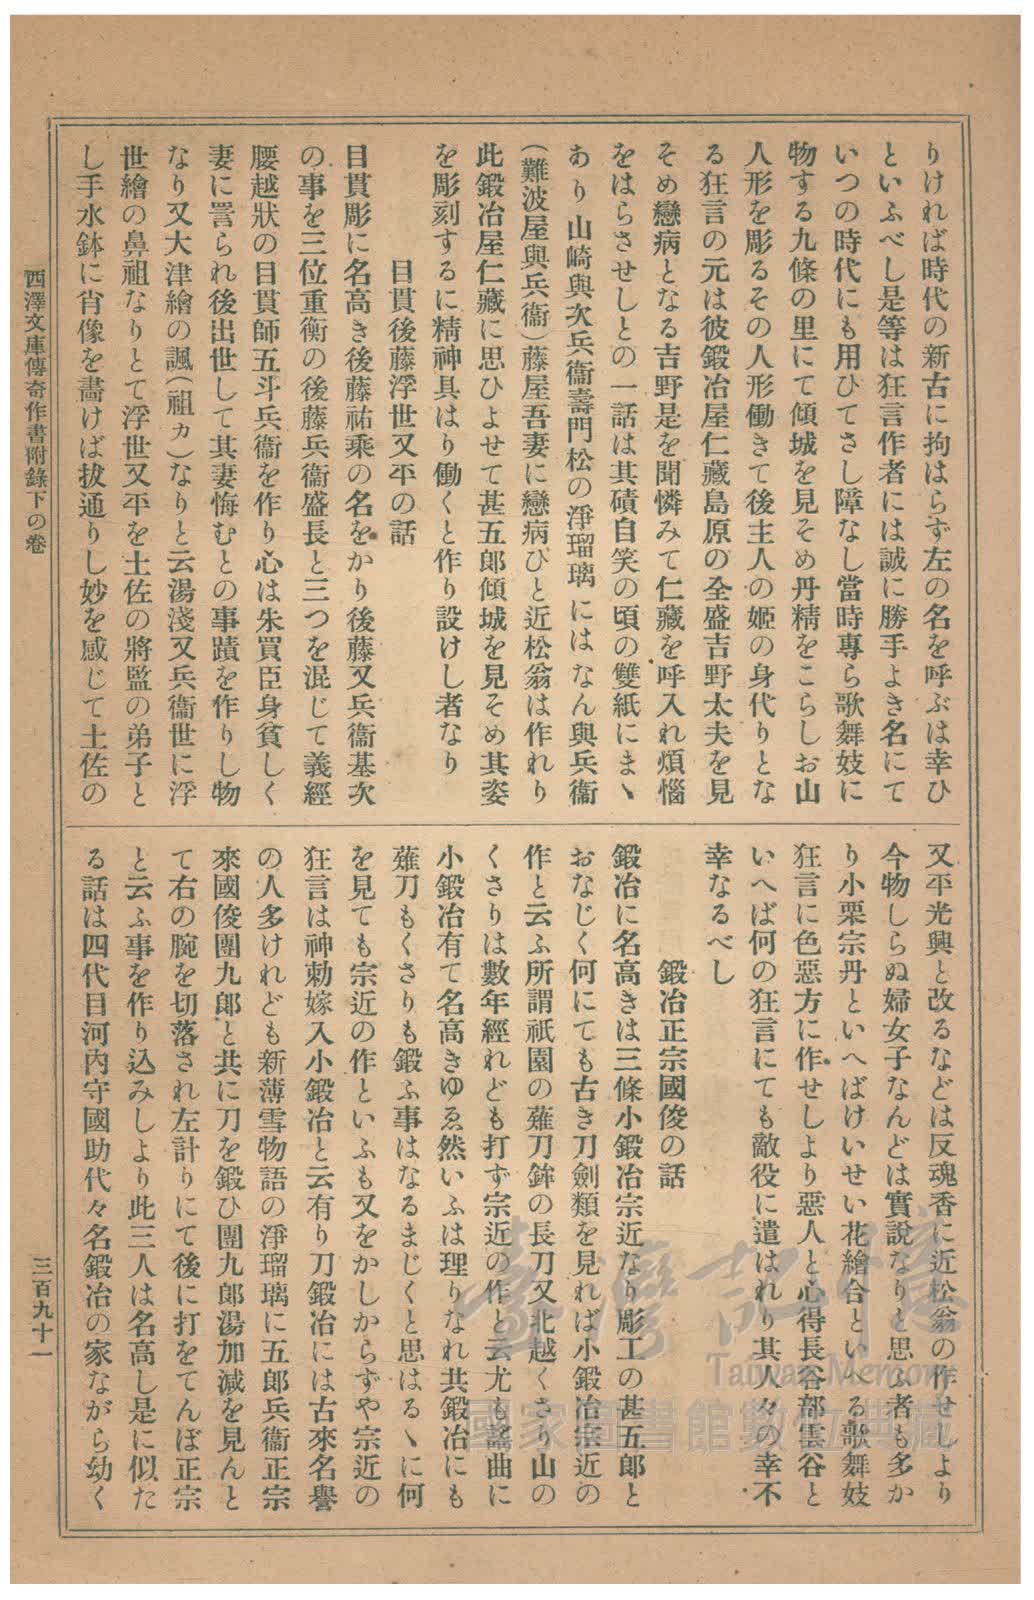 りければ時代の新古に拘はらず左の名を呼ぶは幸ひ
といふべし是等は狂言作者には誠に勝手よき名にて
いつの時代にも用ひてさし障なし當時專ら歌舞妓に
物する九條の里にて傾城を見そめ丹精をこらしお山
人形を彫るその人形働きて後主人の姬の身代りとな
る狂言の元は彼鍛冶屋仁藏島原の全盛吉野太夫を見
そめ戀病となる吉野是を聞憐みて仁藏を呼入れ煩惱
をはらさせしとの一話は其磧自笑の頃の雙紙にまゝ
あり山崎與次兵衞壽門松の淨瑠璃にはなん與兵衞
(難波屋與兵衞)藤屋吾妻に戀病ひと近松翁は作れり
此鍛冶屋仁藏に思ひよせて甚五郎傾城を見そめ其姿
を彫刻するに精神具はり働くと作り設けし者なり
目貫後藤浮世又平の話
目貫彫に名高き後藤祐乘の名をかり後藤又兵衞基次
の事を三位重衡の後藤兵衞盛長と三つを混じて義經
腰越狀の目貫師五斗兵衞を作り心は朱買臣身貧しく
妻に詈られ後出世して其妻悔むとの事蹟を作りし物
なり又大津繪の諷(祖カ)なりと云湯淺又兵衞世に浮
世繪の鼻祖なりとて浮世又平を土佐の將監の弟子と
し手水鉢に肖像を畵けば拔通りし妙を感じて土佐の
又平光興と改るなどは反魂香に近松翁の作せしより
今物しらぬ婦女子なんどは實說なりと思ふ者も多か
り小栗宗丹といへばけいせい花繪合といへる歌舞妓
狂言に色惡方に作せしより惡人と心得長谷部雲谷と
いへば何の狂言にても敵役に遣はれり其人々の幸不
幸なるべし
鍛冶正宗國俊の話
鍛冶に名高きは三條小鍛冶宗近なり彫工の甚五郎と
おなじく何にても古き刀劍類を見れば小鍛冶宗近の
作と云ふ所謂祇園の薙刀鉾の長刀又北越くさり山の
くさりは數年經れども打ず宗近の作と云尤も謠曲に
小鍛冶有て名高きゆゑ然いふは理りなれ共鍛冶にも
薙刀もくさりも鍛ふ事はなるまじくと思はるゝに何
を見ても宗近の作といふも又をかしからずや宗近の
狂言は神勅嫁入小鍛冶と云有り刀鍛冶には古來名譽
の人多けれども新薄雪物語の淨瑠璃に五郎兵衞正宗
來國俊團九郎と共に刀を鍛ひ團九郎湯加減を見んと
て右の腕を切落され左計りにて後に打をてんぼ正宗
と云ふ事を作り込みしより此三人は名高し是に似た
る話は四代目河內守國助代々名鍛冶の家ながら幼く
西澤文庫傳奇作書附錄下の卷
三百九十一
臺灣記憶
Taiwan Memory
國家圖書館數位典藏